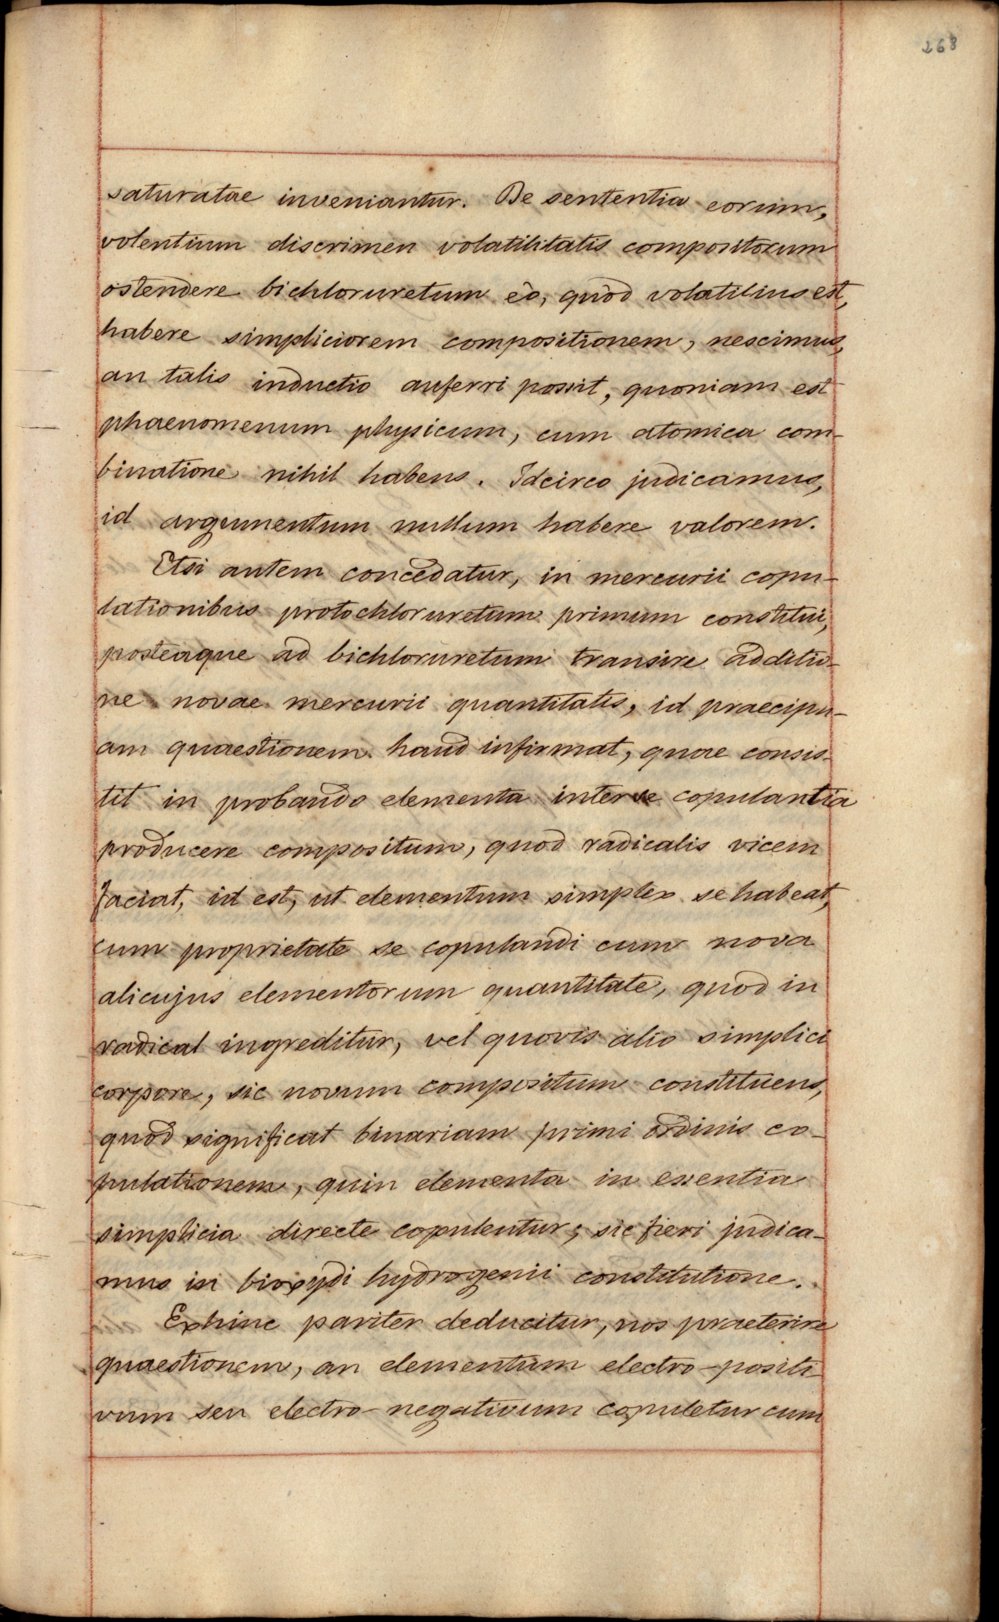 268
saturatae inveniantur. De sententia eorum,
volentium discrimen volatilitatis compositorum
ostendere bichloruretum eò, quòd volatilius est,
habere simpliciorem compositionem, nescimus,
an talis inductio auferri possit, quoniam est
phaenomenum physicum, cum atomica com-
binatione nihil habens. Idcirco judicamus,
id argumentum nullum habere valorem.
Etsi autem concedatur, in mercurii copu-
lationibus protochloruretum primum constitui,
posteaque ad bichloruretum transire additio-
ne novae mercurii quantitatis, id praecipu-
am quaestionem haud infirmat, quae consis-
tit in probando elementa inter se copulantia
producere compositum, quod radicalis vicem
faciat, id est, ut elementum simplex se habeat,
cum proprietate se copulandi cum nova
alicujus elementorum quantitate, quod in
radical ingreditur, vel quovis alio simplici
corpore, sic novum compositum constituens,
quod significat binariam primi ordinis co-
pulationem, quin elementa in essentia
simplicia directe copulentur; sic fieri judica-
mus in bioxydi hydrogenii constitutione.
Exhinc pariter deducitur, nos praeterire
quaestionem, an elementum electro-positi-
vum seu electro-negativum copuletur cum